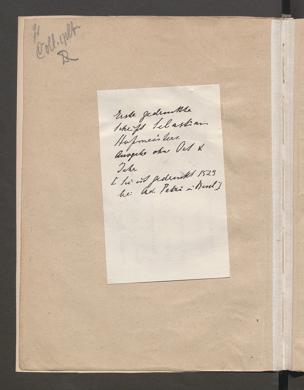 Coll. cplt.
Erste gedruckte
Schrift Sebastian
Hofmeisters
Ausgabe ohne Ort &
Jahr
[ sie ist gedruckt 1523
bei Ad. Petri in Basel ]